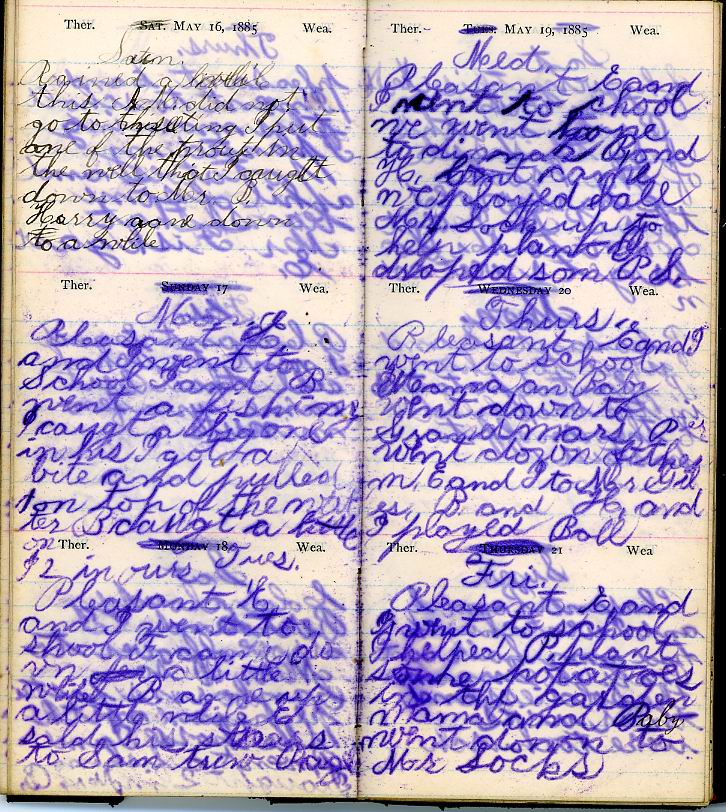 Ther. SAT. MAY 16, 1885 Wea.
Satur.
Rained a little
this. I did not
go to meeting I put
one of the trout in
the well that I caught
down to Mr. P.
Harry came down
to a while
Ther. SUNDAY 17 Wea.
Mon.
Pleasant E
and I went to
School I and B
went a fishing
I caugt a big one
in his I got a
bite and pulled
on top of the wa
ter B caugt a
on
Ther. MONDAY 18, Wea.
12 in ours Tues.
Pleasant E
and I went to
shool it came do
wn a little
B came up
a little while E
sold his
to Sam
Ther. TUES. MAY 19, 1885 Wea.
Wed.
Pleasant E and
I went to school
we went home
to dinnar B and
H. came
we played ball
Mr. Sock up to
help plant
droped som P.S.
Ther. WEDNESDAY 20 Wea.
Thurs.
Pleasant E and I
went to school
Mamma an Baby
went down to
Grandmars P
went down
m E and I to Mr. Gil
es B and H, and
I played Ball
Ther. THURSDAY 21 Wea
Fri.
Pleasant E and
I went to school
I helped P. plant
some potatoes
in the garden
mama and Baby
went down to
Mr Socks